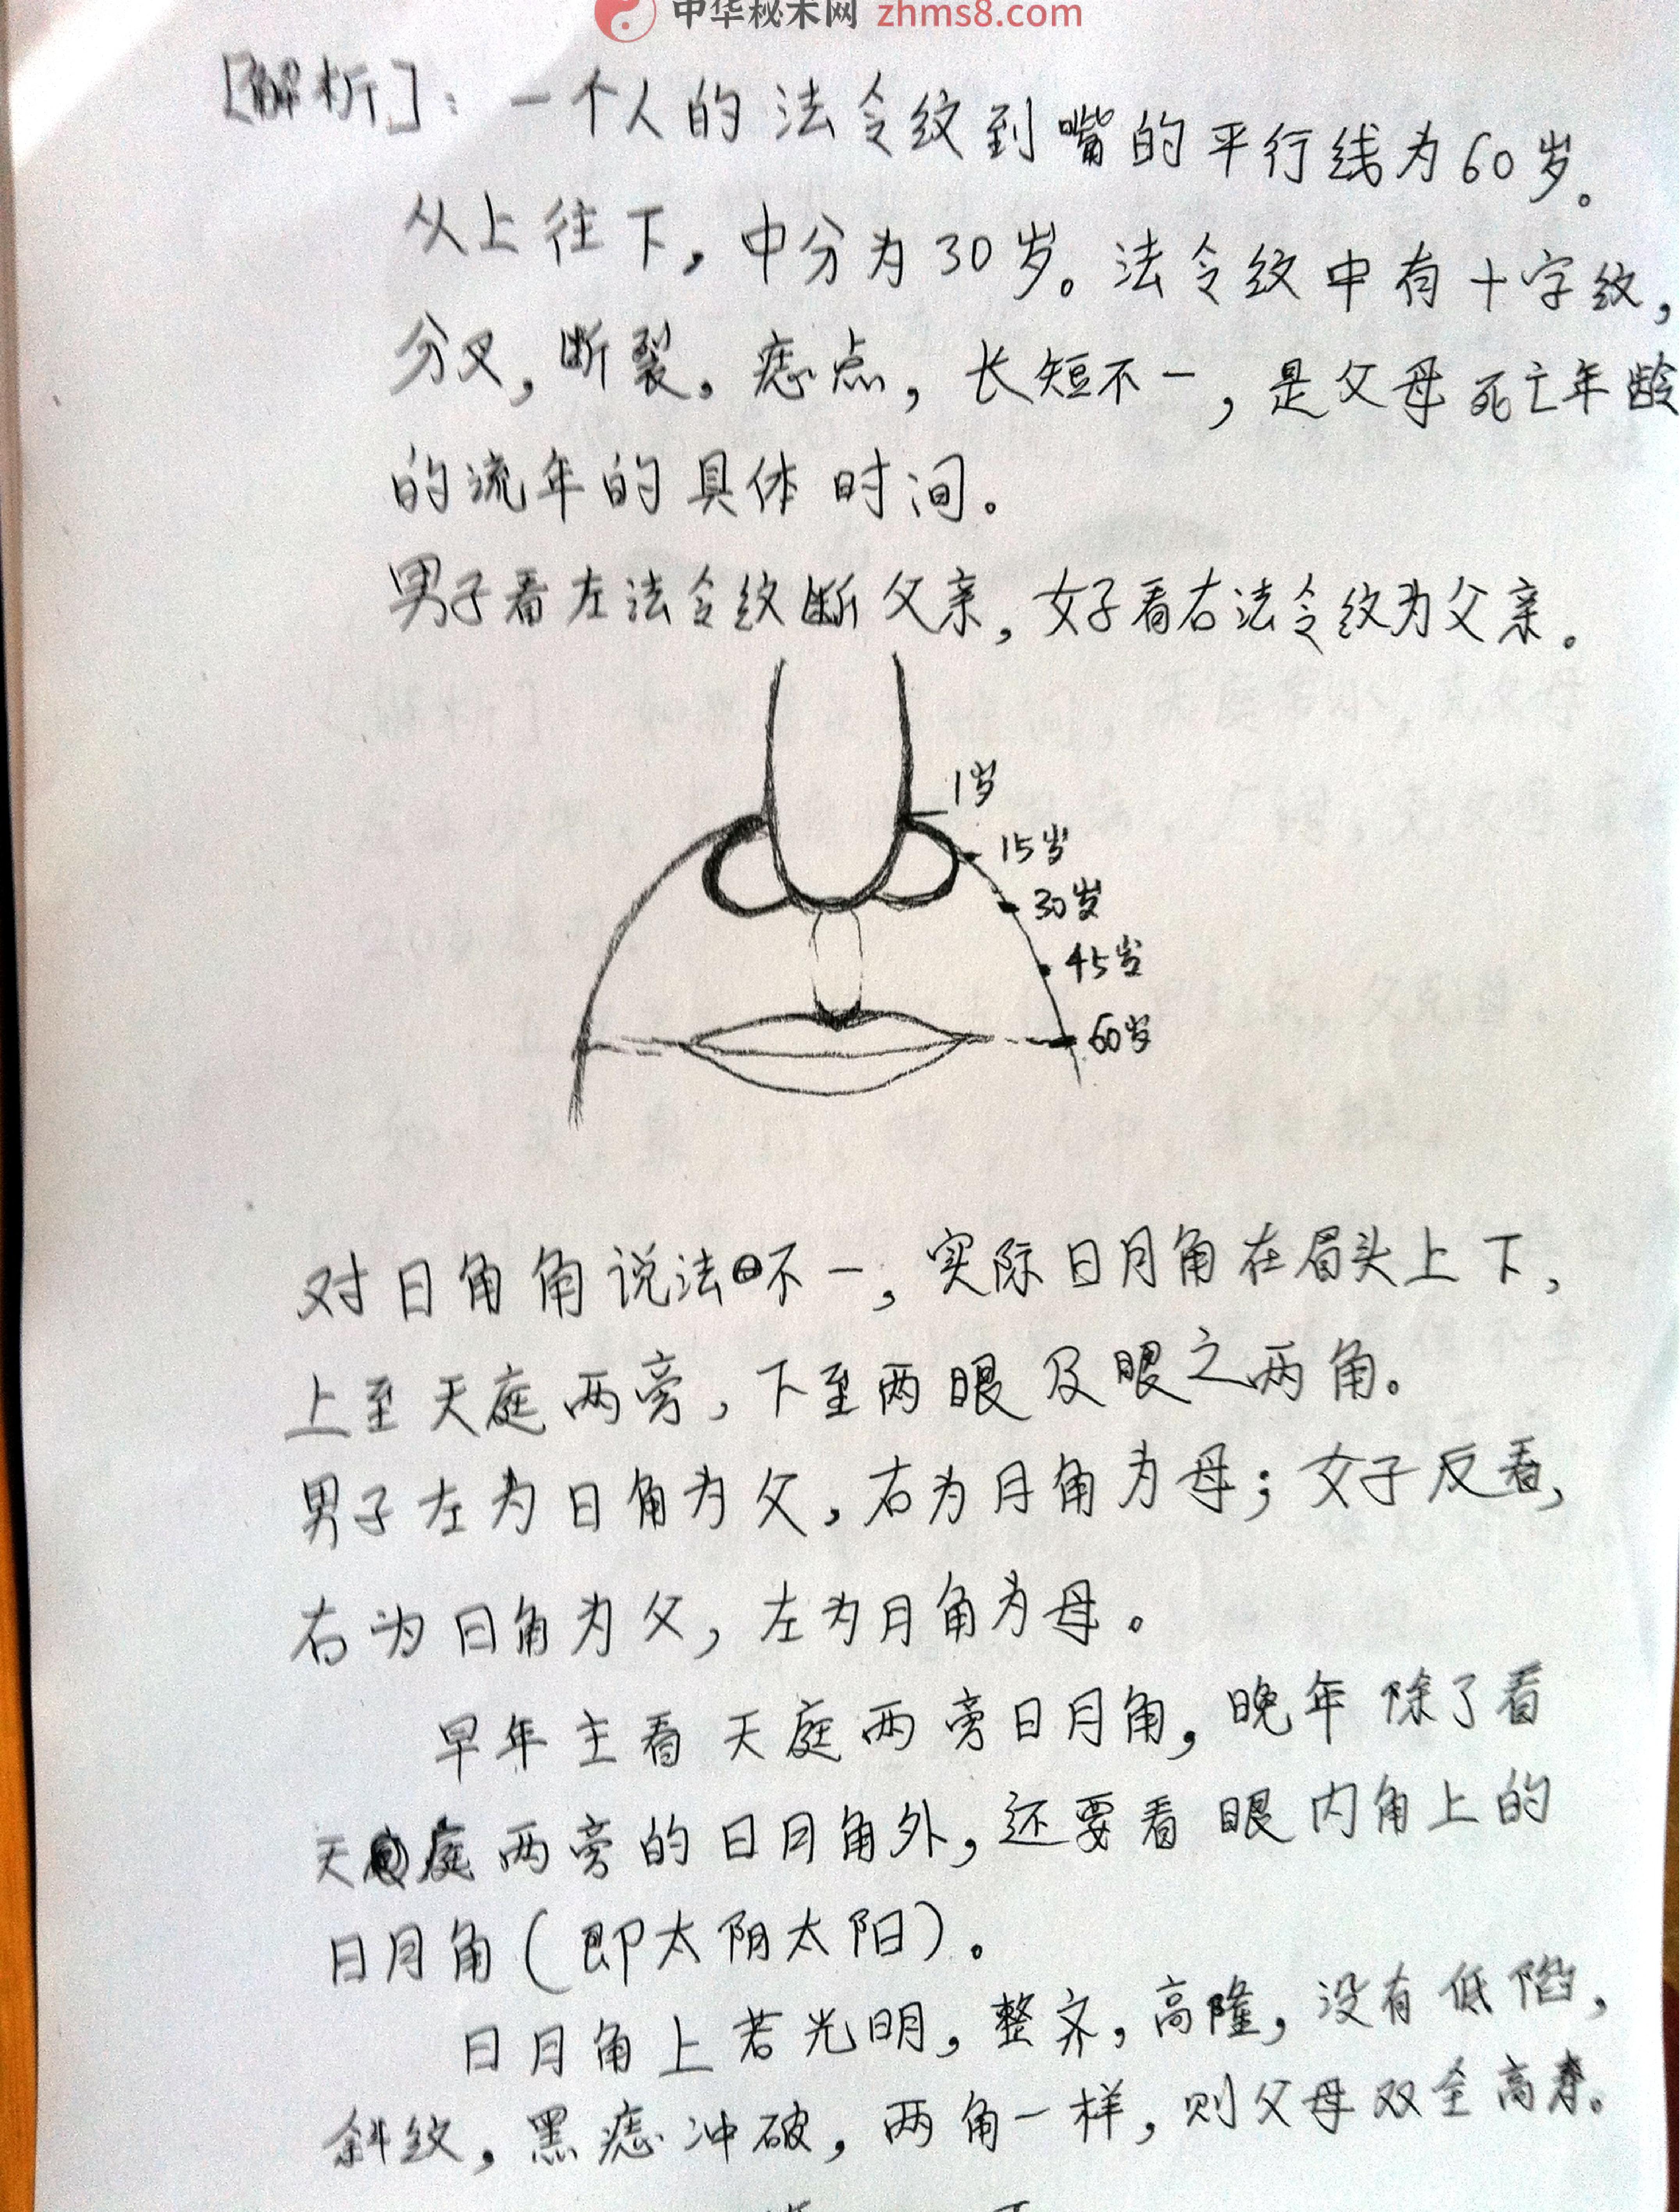 中华秘术网 zhms8.com
[解析]：一个人的法令纹到嘴的平行线为60岁。
从上往下，中分为30岁。法令纹中有十字纹，
分叉，断裂，痣点，长短不一，是父母死亡年龄
的流年的具体时间。
男子看左法令纹断父亲，女子看右法令纹为父亲。
1岁
15岁
30岁
45岁
60岁
对日角角说法不一，实际日月角在眉头上下，
上至天庭两旁，下至两眼及眼之两角。
男子左为日角为父，右为月角为母；女子反看，
右为日角为父，左为月角为母。
早年主看天庭两旁日月角，晚年除了看
天庭两旁的日月角外，还要看眼内角上的
日月角(即太阴太阳)。
日月角上若光明，整齐，高隆，没有低陷，
斜纹，黑痣冲破，两角一样，则父母双全高寿。